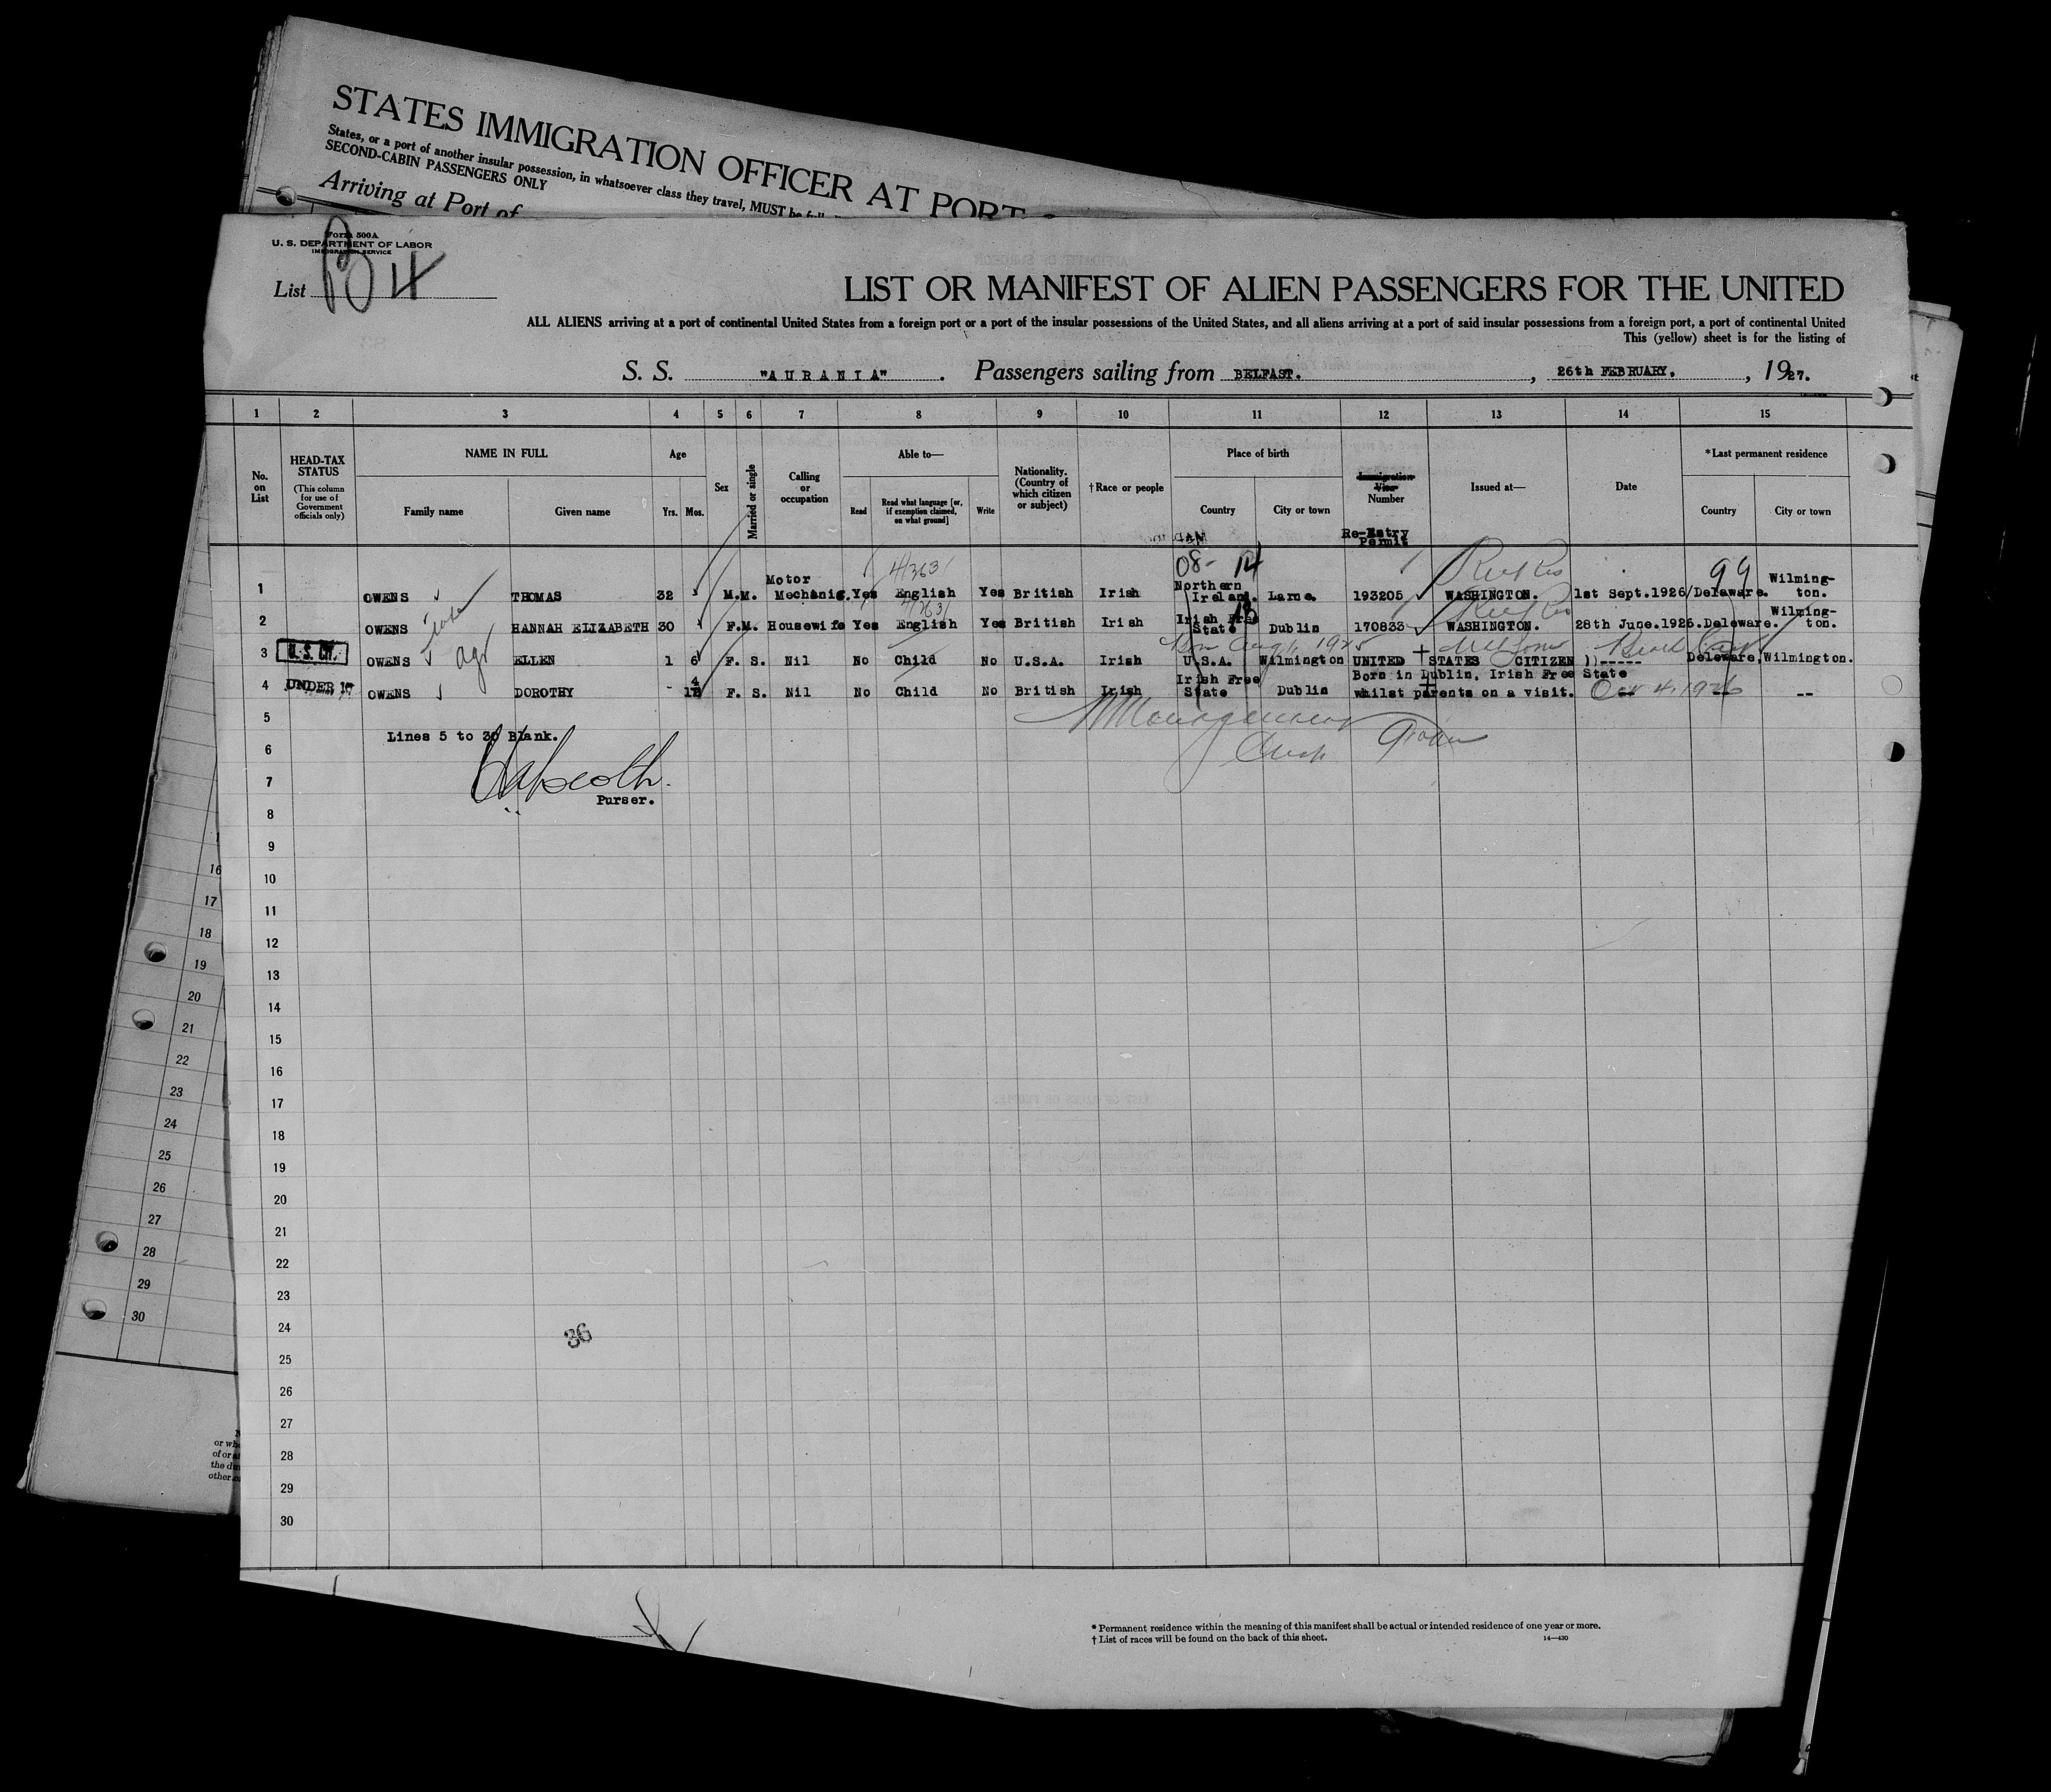 STATES IMMIGRATION OFFICER AT PORT
States, or a port of another insular possession, in whatsoever class they travel, MUST be
SECOND-CABIN PASSENGERS ONLY
Arriving at Port of
Form 500A
U. S. DEPARTMENT OF LABOR
IMMIGRATION SERVICE
List 84
LIST OR MANIFEST OF ALIEN PASSENGERS FOR THE UNITED
ALL ALIENS arriving at a port of continental United States from a foreign port or a port of the insular possessions of the United States, and all aliens arriving at a port of said insular possessions from a foreign port, a port of continental United
This (yellow) sheet is for the listing of
S. S. "AURANIA". Passengers sailing from BELFAST. , 26th FEBRUARY. , 1927.
1 2 3 4 5 6 7 8 9 10 11 12 13 14 15
No. on List
HEAD-TAX STATUS (This column for use of Government officials only)
NAME IN FULL
Family name
Given name
Age
Yrs. Mos.
Sex
Married or single
Calling or occupation
Able to—
Read
Read what language [or, if exemption claimed, on what ground]
Write
Nationality. (Country of which citizen or subject)
†Race or people
Place of birth
Country
City or town
Immigration Visa Number
Re-Entry Permit
Issued at—
Date
*Last permanent residence
Country
City or town
08- 14
4/363
99
1 OWENS THOMAS 32 M. M. Motor Mechanic. Yes English Yes British Irish Northern Ireland. Larne. 193205 WASHINGTON. 1st Sept.1926/Delaware. Wilming-ton.
2 OWENS HANNAH ELIZABETH 30 F. M. Housewife Yes English Yes British Irish Irish Free State Dublin 170833 WASHINGTON. 28th June.1926.Deleware. Wilming-ton.
Born Aug 1, 1925
3 U.S. CIT. OWENS ELLEN 1 6 F. S. Nil No Child No U.S.A. Irish U.S.A. Wilmington UNITED STATES CITIZEN ))----- Deleware, Wilmington.
4 UNDER 16 OWENS DOROTHY - 4 F. S. Nil No Child No British Irish Irish Free State Dublin Born in Dublin, Irish Free State whilst parents on a visit. Oct 4, 1926 -- --
5
Lines 5 to 30 Blank.
6
7
Purser.
8
9
10
11
12
13
14
15
16
17
18
19
20
21
22
23
24
36
25
26
27
28
29
30
16
17
18
19
20
21
22
23
24
25
26
27
28
29
30
* Permanent residence within the meaning of this manifest shall be actual or intended residence of one year or more.
† List of races will be found on the back of this sheet.
14—430